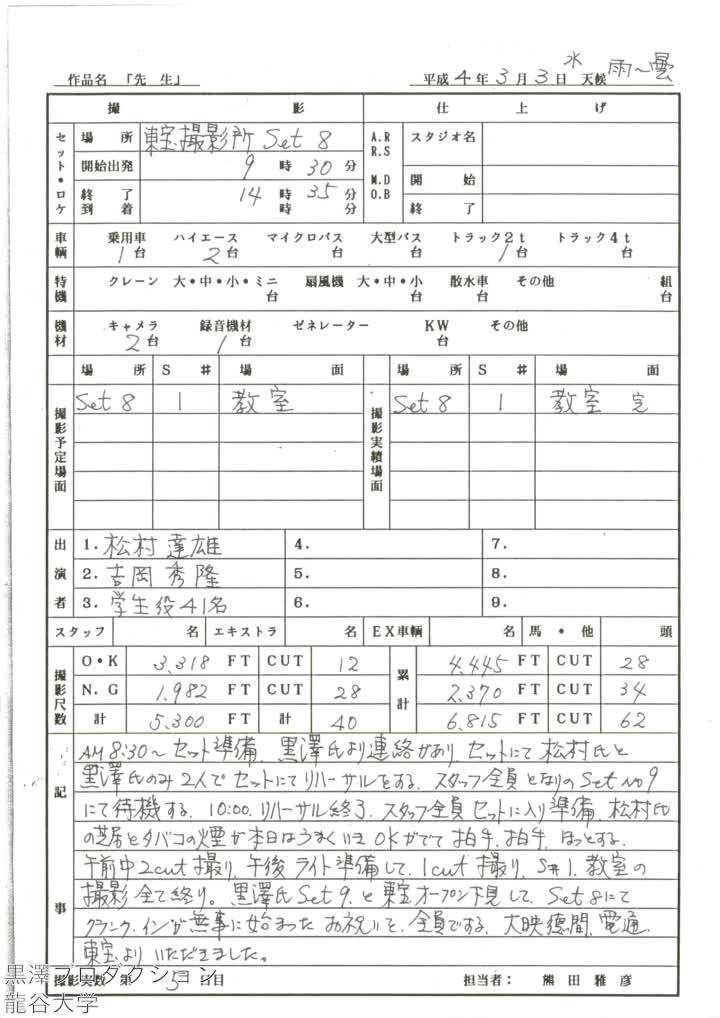 作品名 「先 生」 平成4年3月3日 水 天候 雨〜曇
撮 影 仕 上 げ
セット・ロケ 場 所 東宝撮影所 Set 8 A.R R.S スタジオ名
開始出発 9 時 30 分
終 了 14 時 35 分 M.D O.B 開 始
到 着 時 分 終 了
車輌 乗用車 ハイエース マイクロバス 大型バス トラック2t トラック4t
1台 2台 台 台 1台 台
特機 クレーン 大・中・小・ミニ 扇風機 大・中・小 散水車 その他 組
台 台 台 台
機材 キャメラ 録音機材 ゼネレーター KW その他
2台 1台 台
場 所 S # 場 面 場 所 S # 場 面
撮影予定場面 Set 8 1 教室 撮影実績場面 Set 8 1 教室 完
出演者 1. 松村達雄 4. 7.
2. 吉岡秀隆 5. 8.
3. 学生役41名 6. 9.
スタッフ 名 エキストラ 名 EX車輌 名 馬・他 頭
撮影尺数 O・K 3,318 FT CUT 12 累計 4,445 FT CUT 28
N.G 1,982 FT CUT 28 2,370 FT CUT 34
計 5,300 FT 計 40 6,815 FT CUT 62
記事
AM 8:30〜セット準備、黒澤氏より連絡があり セットにて 松村氏と
黒澤氏のみ 2人で セットにてリハーサルをする。スタッフ全員となりのSet No9
にて待機する。10:00. リハーサル終了、スタッフ全員セットに入り準備、松村氏
の芝居とタバコの煙が本日はうまくいき OKがでて 拍手、拍手、ほっとする。
午前中2cut撮り、午後 ライト準備して、1cut撮り、S#1. 教室の
撮影全て終り。黒澤氏 Set 9. と東宝オープン下見して、Set 8にて
クランク・インが無事に始まった お祝いを、全員でする。大映徳間、電通、
東宝よりいただきました。
撮影実数 第 5 日目 担当者: 熊田雅彦
黒澤プロダクション
龍谷大学